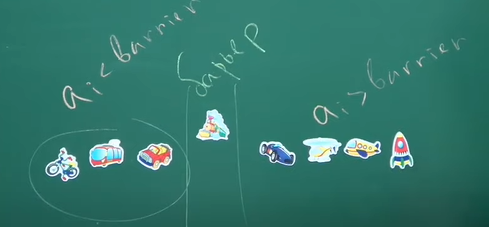 ai < barrier
Барьер
ai > barrier